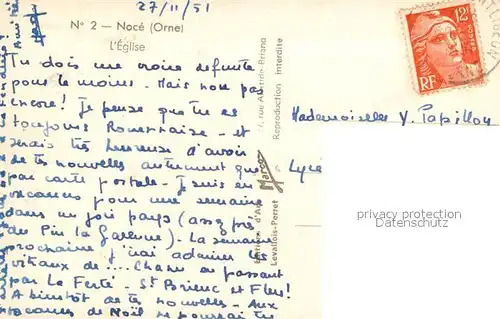 27/11/51
N° 2 - Nocé (Orne)
L'Église
Tu dois me croire défunte
pour le moins. Mais non pas
encore! Je pense que tu es
toujours Rouennaise - et
serais très heureuse d'avoir
de tes nouvelles autrement que
par carte postale. Je suis en
vacances pour une semaine
dans un joli pays (assez près
du Pin la Garenne). La semaine
prochaine j'irai admirer les
vitraux de .... Chars en passant
par La Ferté - St Brieuc et Flers!
A bientôt de tes nouvelles. Aux
vacances de Noël ne pourrais tu
rue Aristide-Briand
Reproduction interdite
Editions d'Art Marco
Levallois-Perret
12F
RF
Mademoiselle Y. Papillon
Lycée
privacy protection
Datenschutz